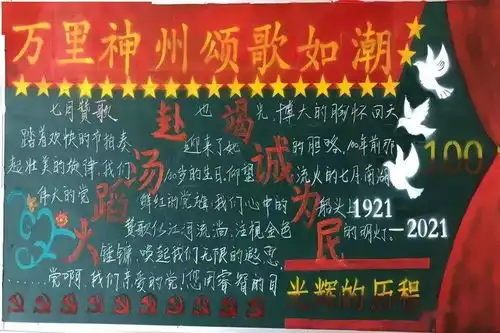 万里神州颂歌如潮
七月赞歌
踏着欢快的节拍奏
起壮美的旋律,我们
伟大的党
也
迎来了她
100岁的生日,仰望
鲜红的党旗,我们心中的
赞歌似江河流淌,注视金色
锤镰,唤起我们无限的遐思,
……党啊,我们亲爱的党!您闭睿智的目
光,博大的胸怀回天
的胆略,100年前那
流火的七月,南湖
船头上
的明灯。
赴汤蹈火
竭诚为民
100
1921
—2021
光辉的历程